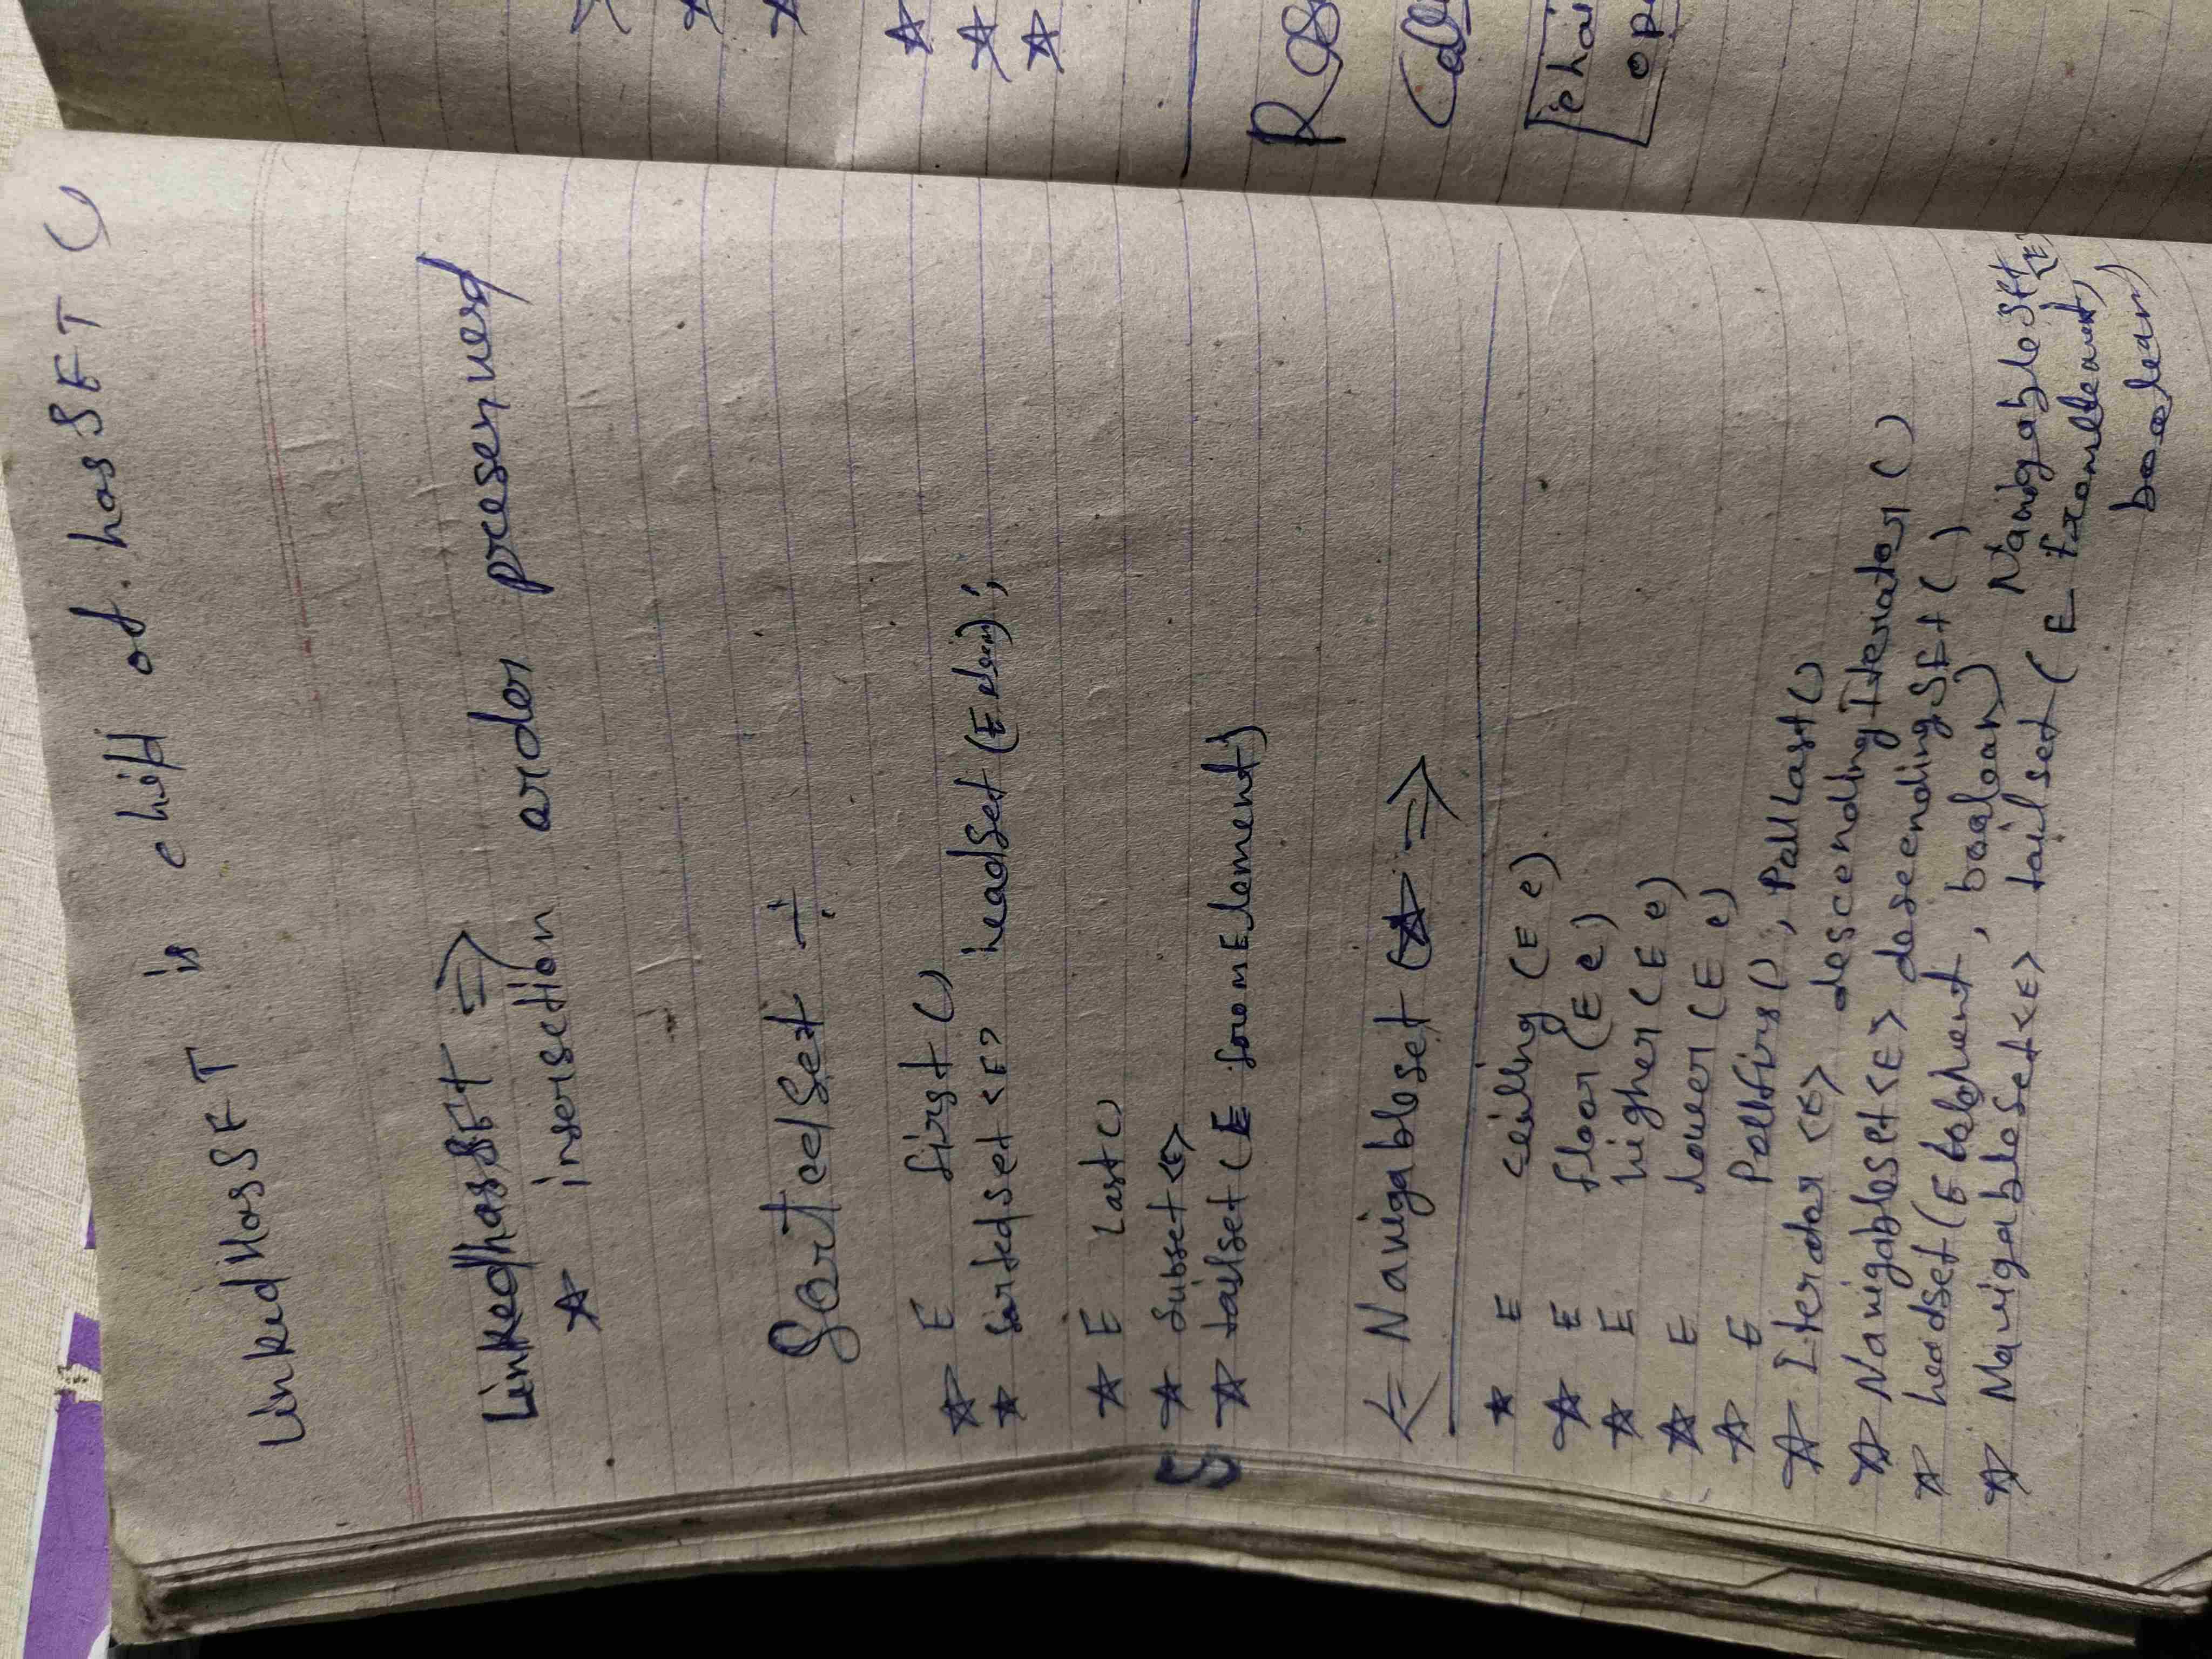 LinkedHasSET is child of hasSET ()
LinkedhasSET ⇒
☆ insersetion order preserverd
SortedSet ÷
☆ E first ()
★ sortedset <E> headSet (E elem) ;
☆ E Last ()
☆ Subset <E>
☆ tailset ( E fromElement)
⇐ Navigableset ☆ ⇒
★ E ceilling (E e).
☆ E floor (E e)
☆ E higher (E e)
☆ E lower (E e)
☆ E Pollfirs () , PollLast ()
☆ Iterator <E> descendingIterator ( )
☆ Navigableset <E> descendingSEt ( )
☆ headset (E , boolean) NavigableSEt <E>
☆ NavigableSet <E> tailset ( E fromElement,
boolean)
Ros
Coll
chai
ope